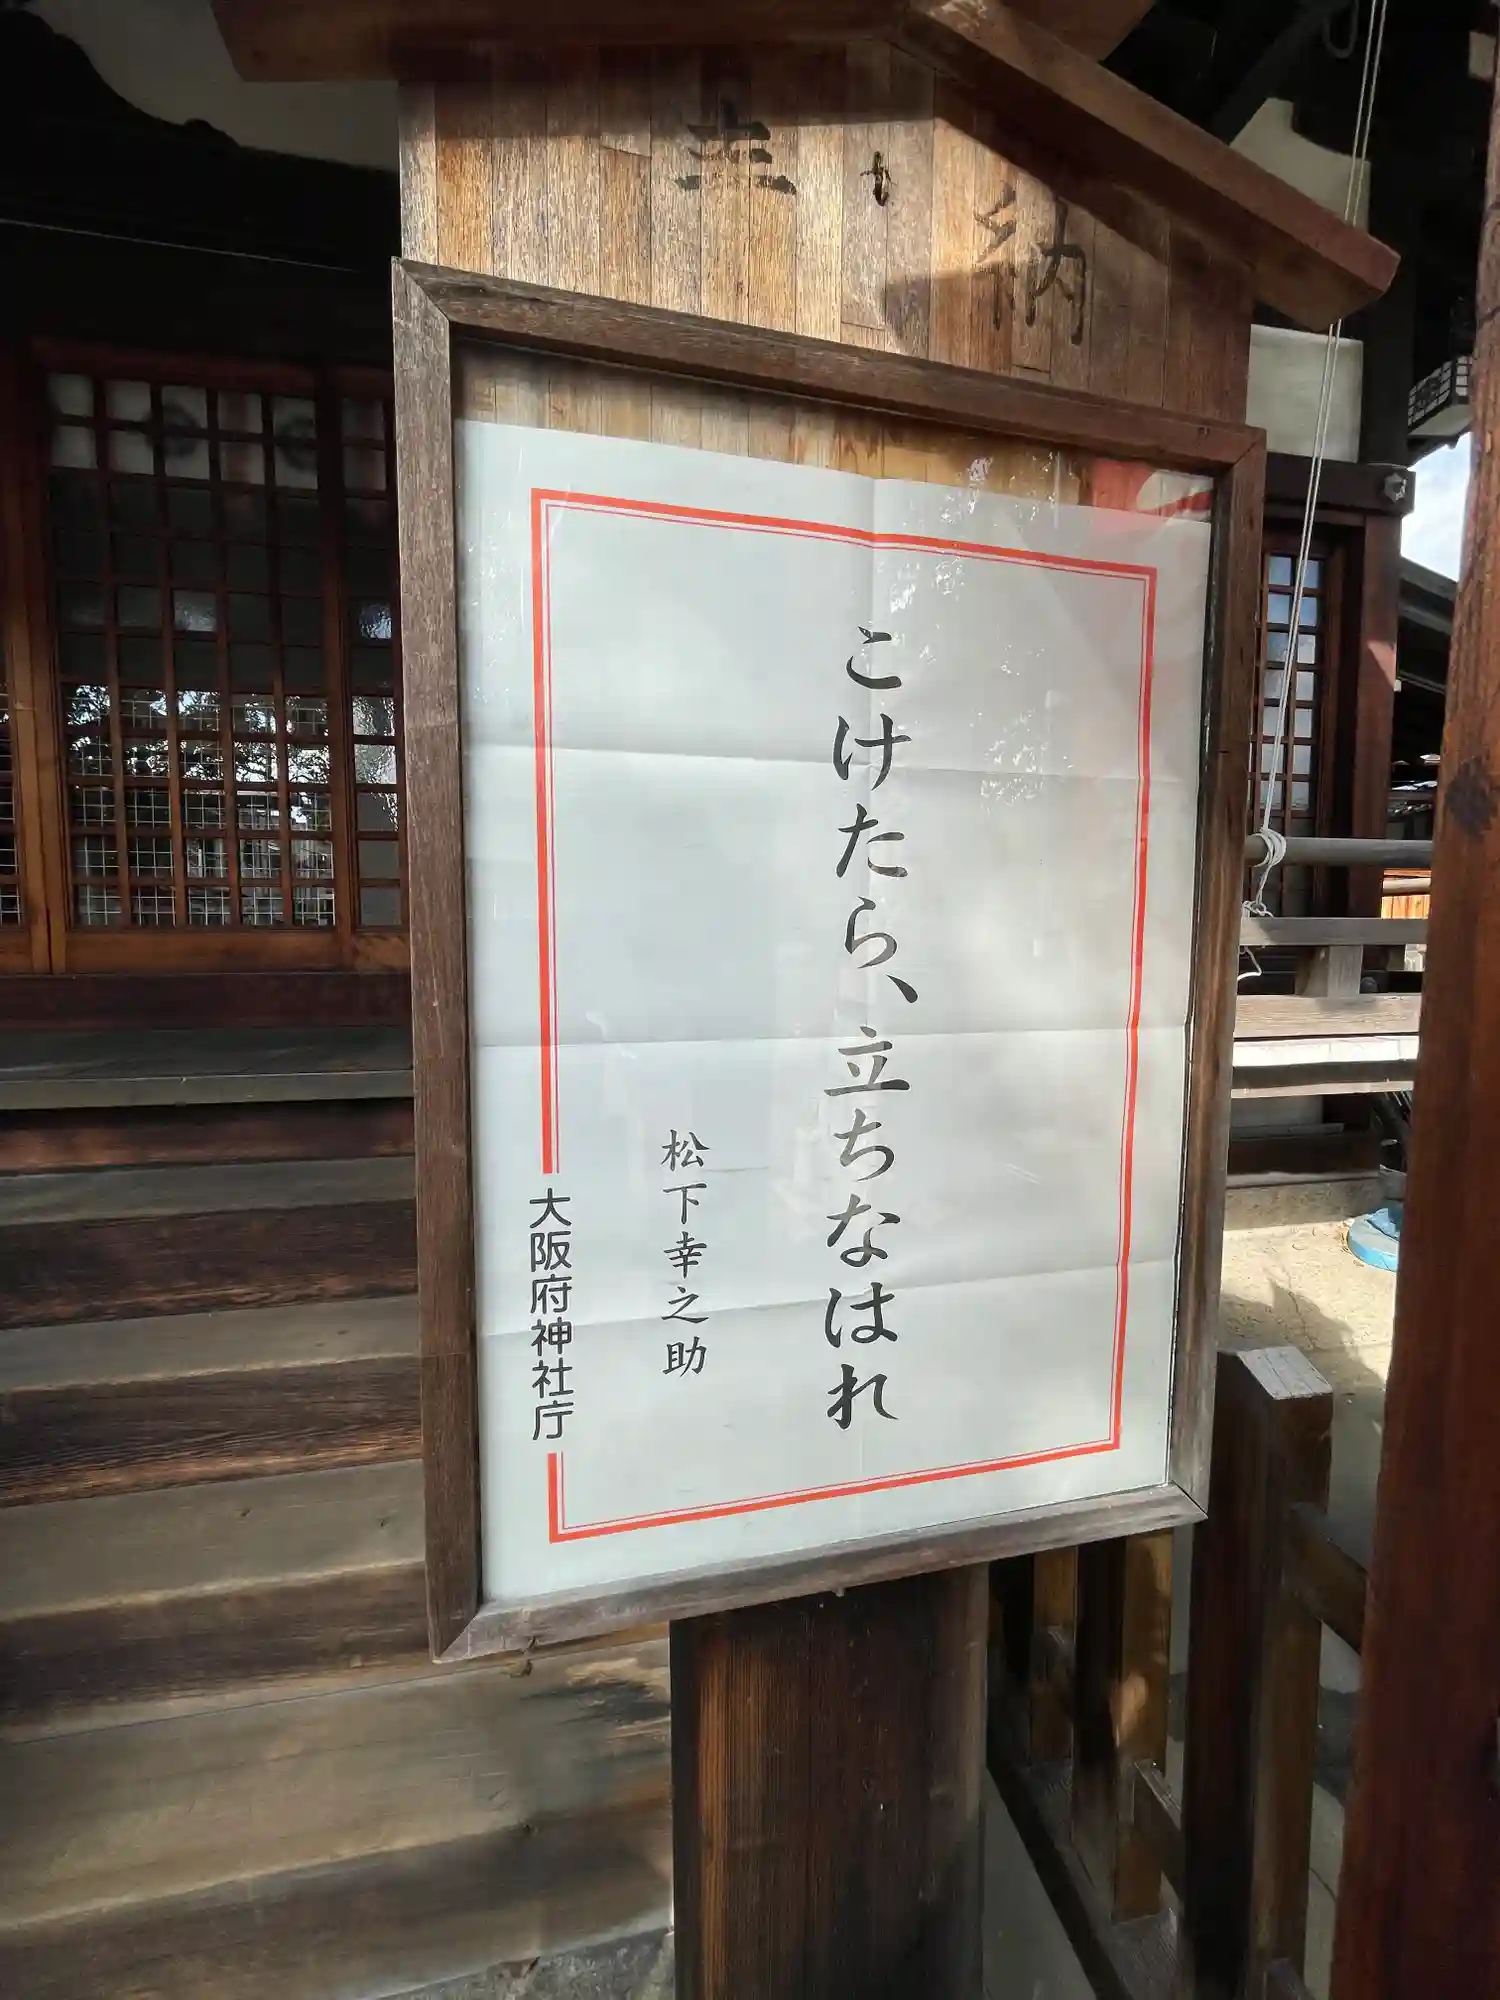 納
こけたら、立ちなはれ
松下幸之助
大阪府神社庁